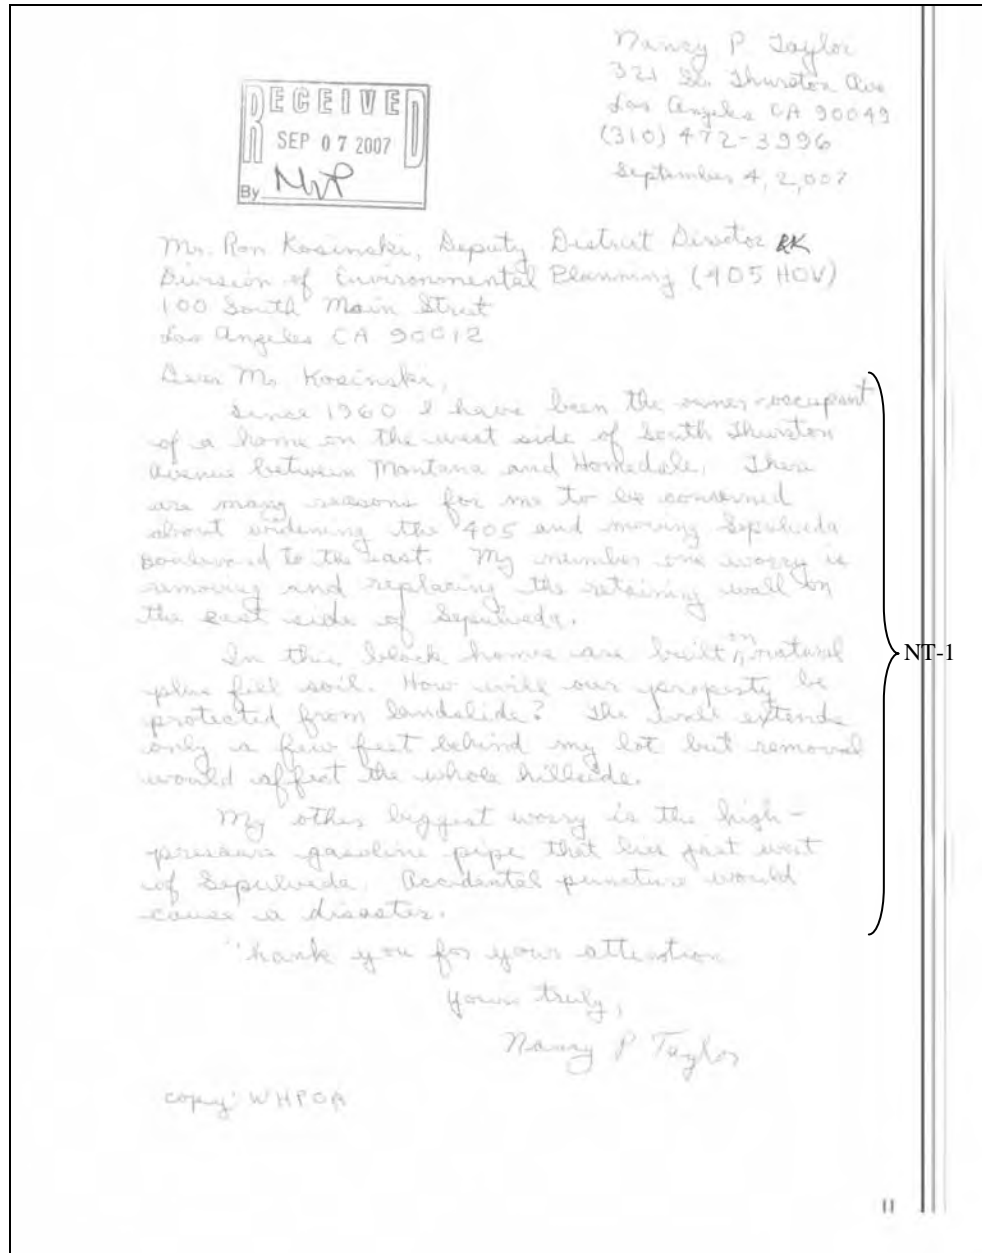 Nancy P Taylor
321 So. Thurston Ave
Los Angeles CA 90049
(310) 472-3996
September 4, 2,007
RECEIVED
SEP 07 2007
By
Mr. Ron Kosinski, Deputy District Director RK
Division of Environmental Planning (405 HOV)
100 South Main Street
Los Angeles CA 90012
Dear Mr. Kosinski,
Since 1960 I have been the owner-occupant
of a home on the west side of South Thurston
Avenue between Montana and Homedale. There
are many reasons for me to be concerned
about widening the 405 and moving Sepulveda
Boulevard to the East. My number one worry is
removing and replacing the retaining wall on
the east side of Sepulveda.
In this block homes are built on natural
plus fill soil. How will our property be
protected from landslide? The wall extends
only a few feet behind my lot but removal
would affect the whole hillside.
NT-1
My other biggest worry is the high-
pressure gasoline pipe that lies just west
of Sepulveda. Accidental puncture would
cause a disaster.
Thank you for your attention
Yours truly,
Nancy P Taylor
copy: WHPOA